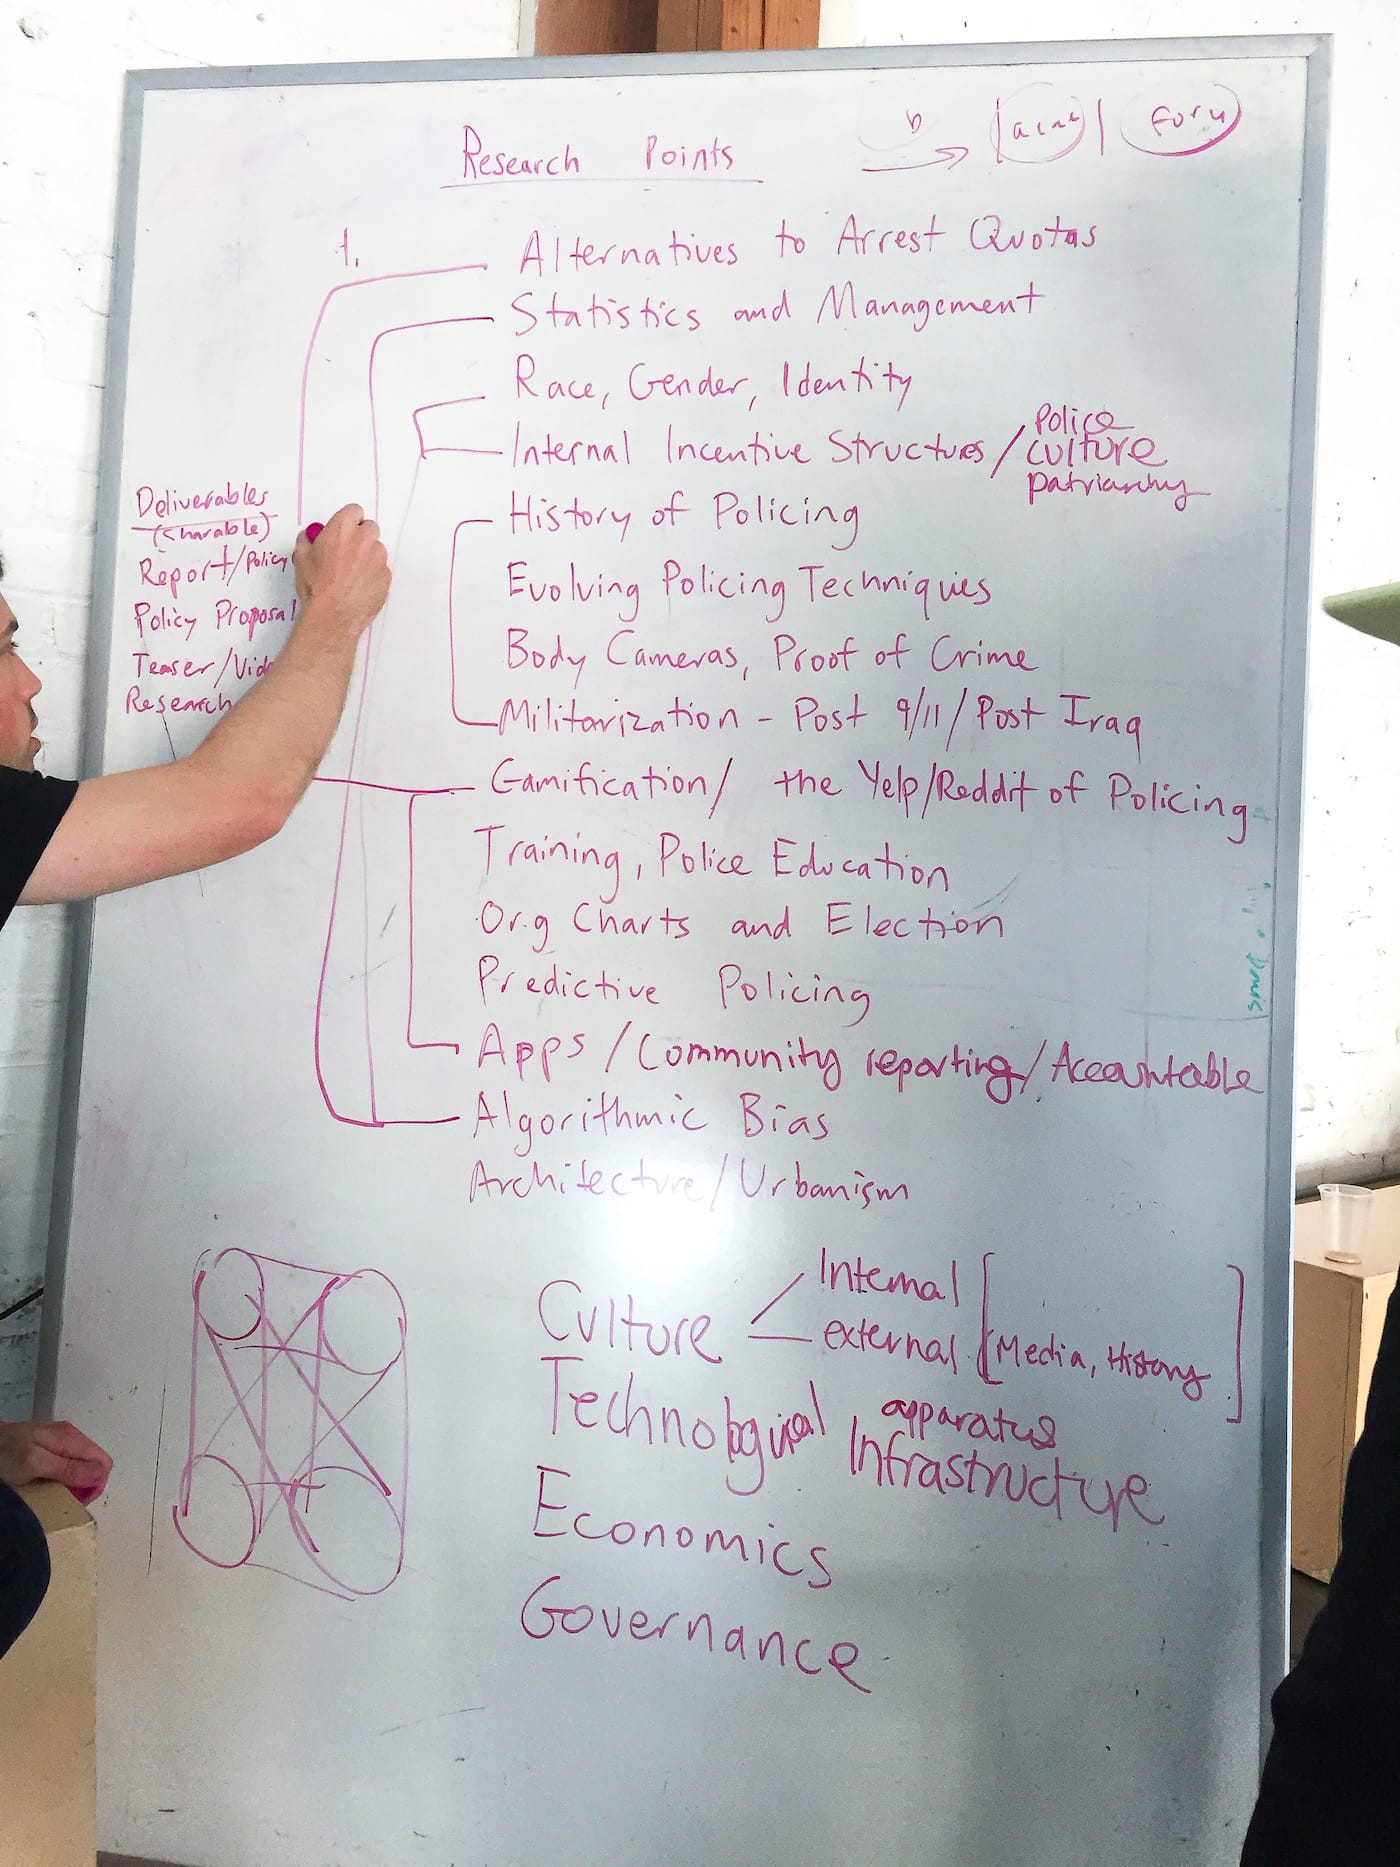 Research Points
1.
Alternatives to Arrest Quotas
Statistics and Management
Race, Gender, Identity
Internal Incentive Structures / Police
culture
patriarchy
History of Policing
Evolving Policing Techniques
Body Cameras, Proof of Crime
Militarization - Post 9/11 / Post Iraq
Gamification / the Yelp/Reddit of Policing
Training, Police Education
Org Charts and Election
Predictive Policing
Apps / Community reporting / Accountable
Algorithmic Bias
Architecture / Urbanism
Deliverables
(sharable)
Report/Policy
Policy Proposal
Teaser/Vid
Research
Culture < Internal
external [Media, History]
Technological apparatus
Infrastructure
Economics
Governance